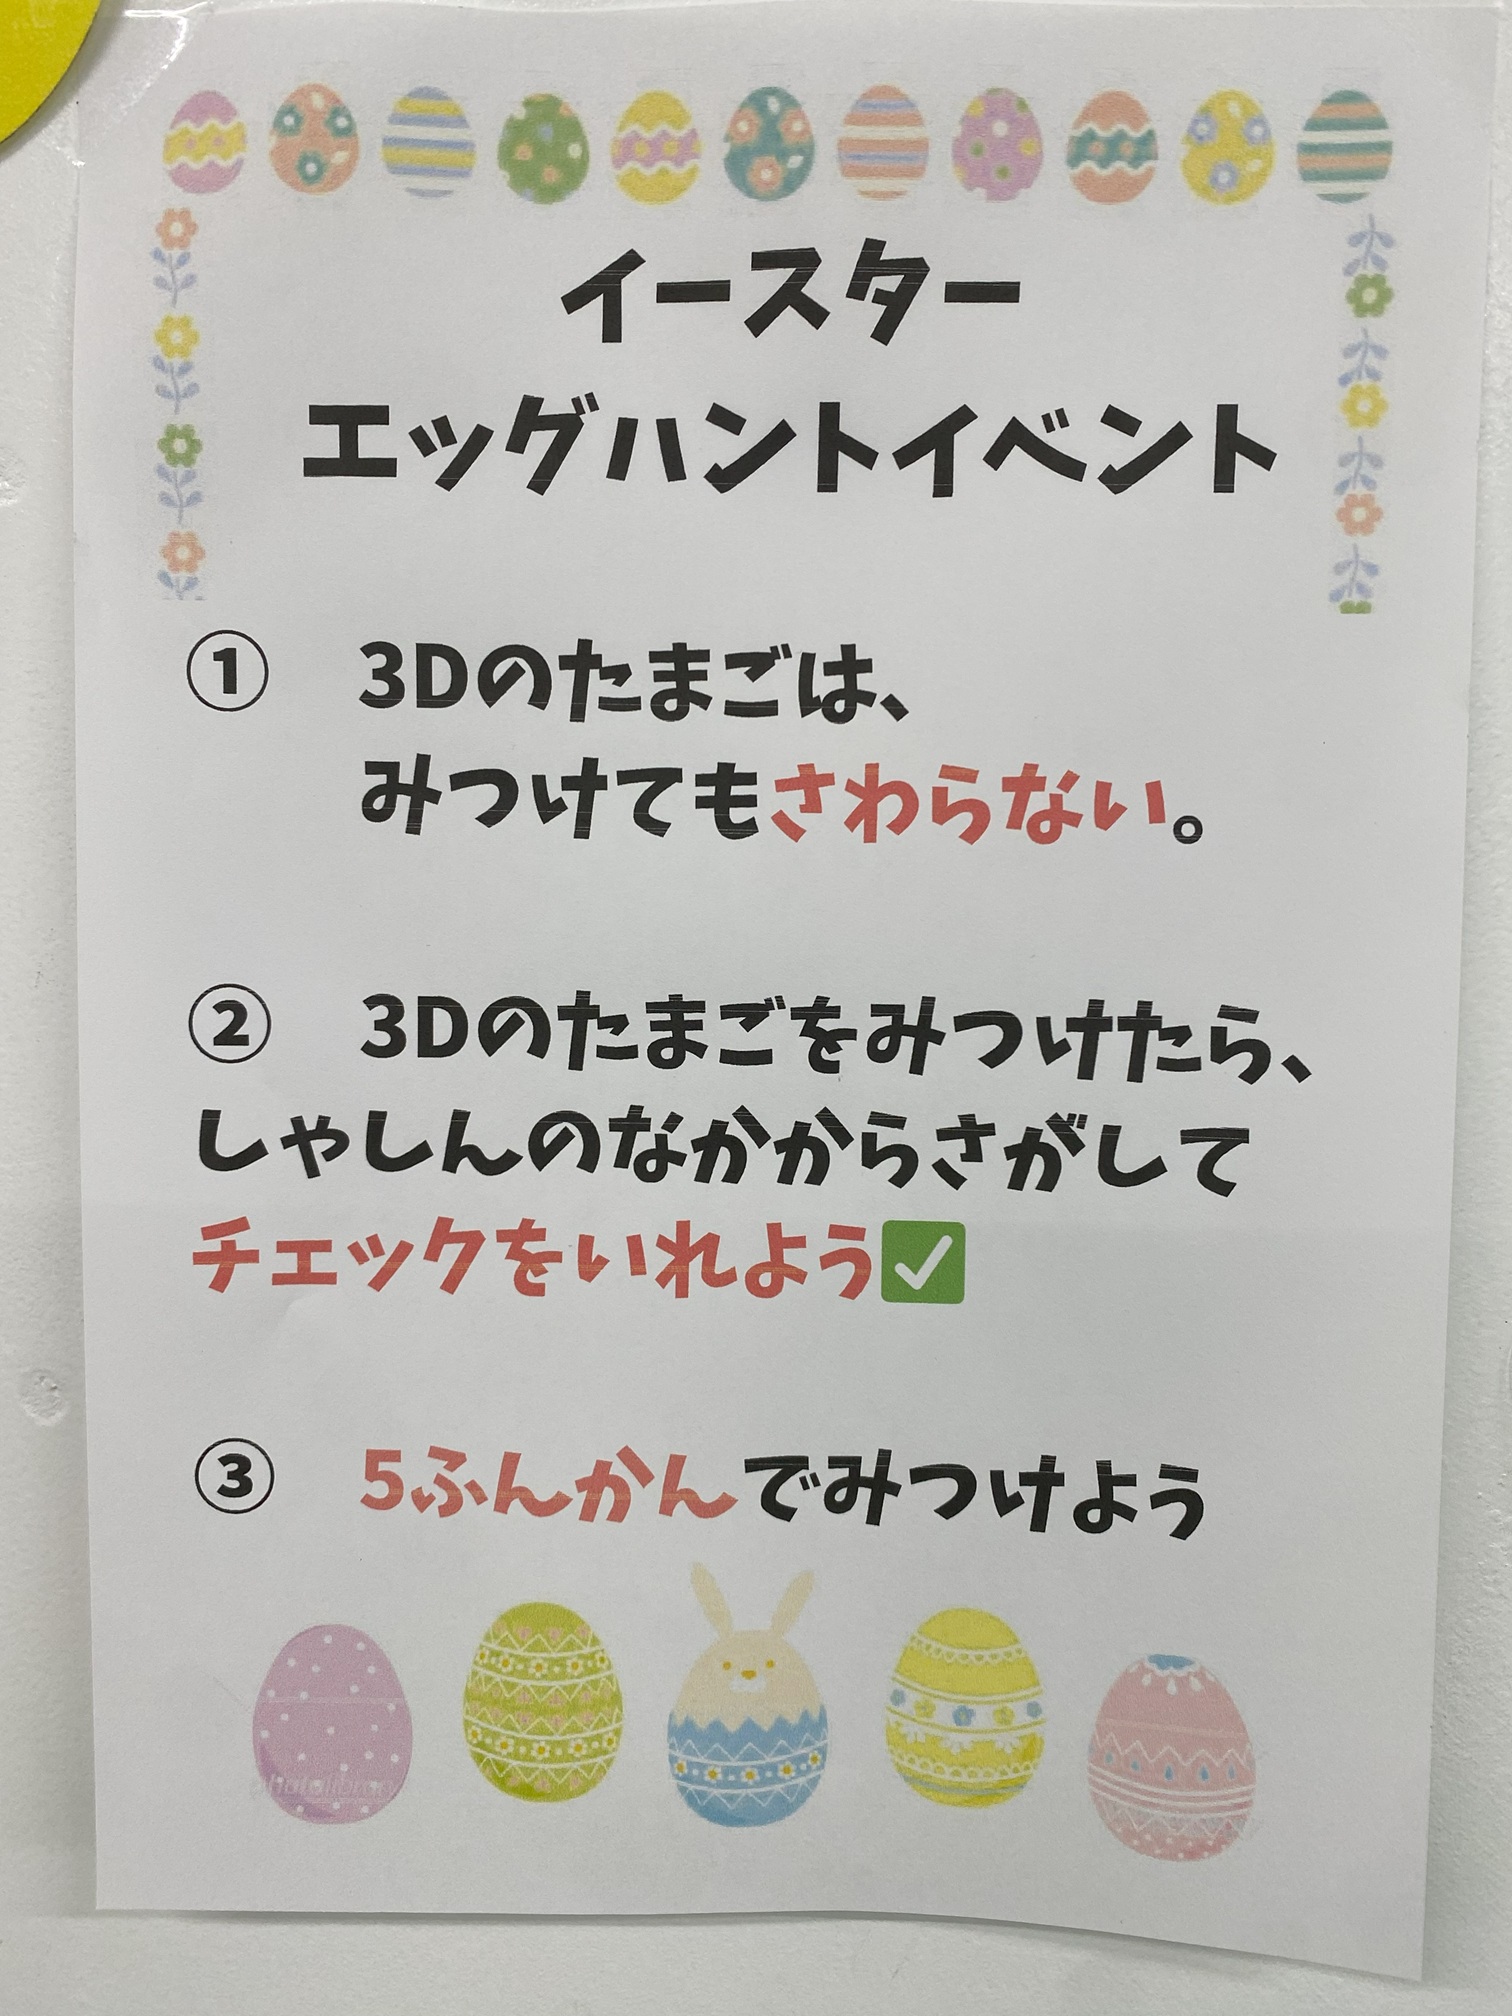 イースター
エッグハントイベント
① 3Dのたまごは、
みつけてもさわらない。
② 3Dのたまごをみつけたら、
しゃしんのなかからさがして
チェックをいれよう✅
③ 5ふんかんでみつけよう